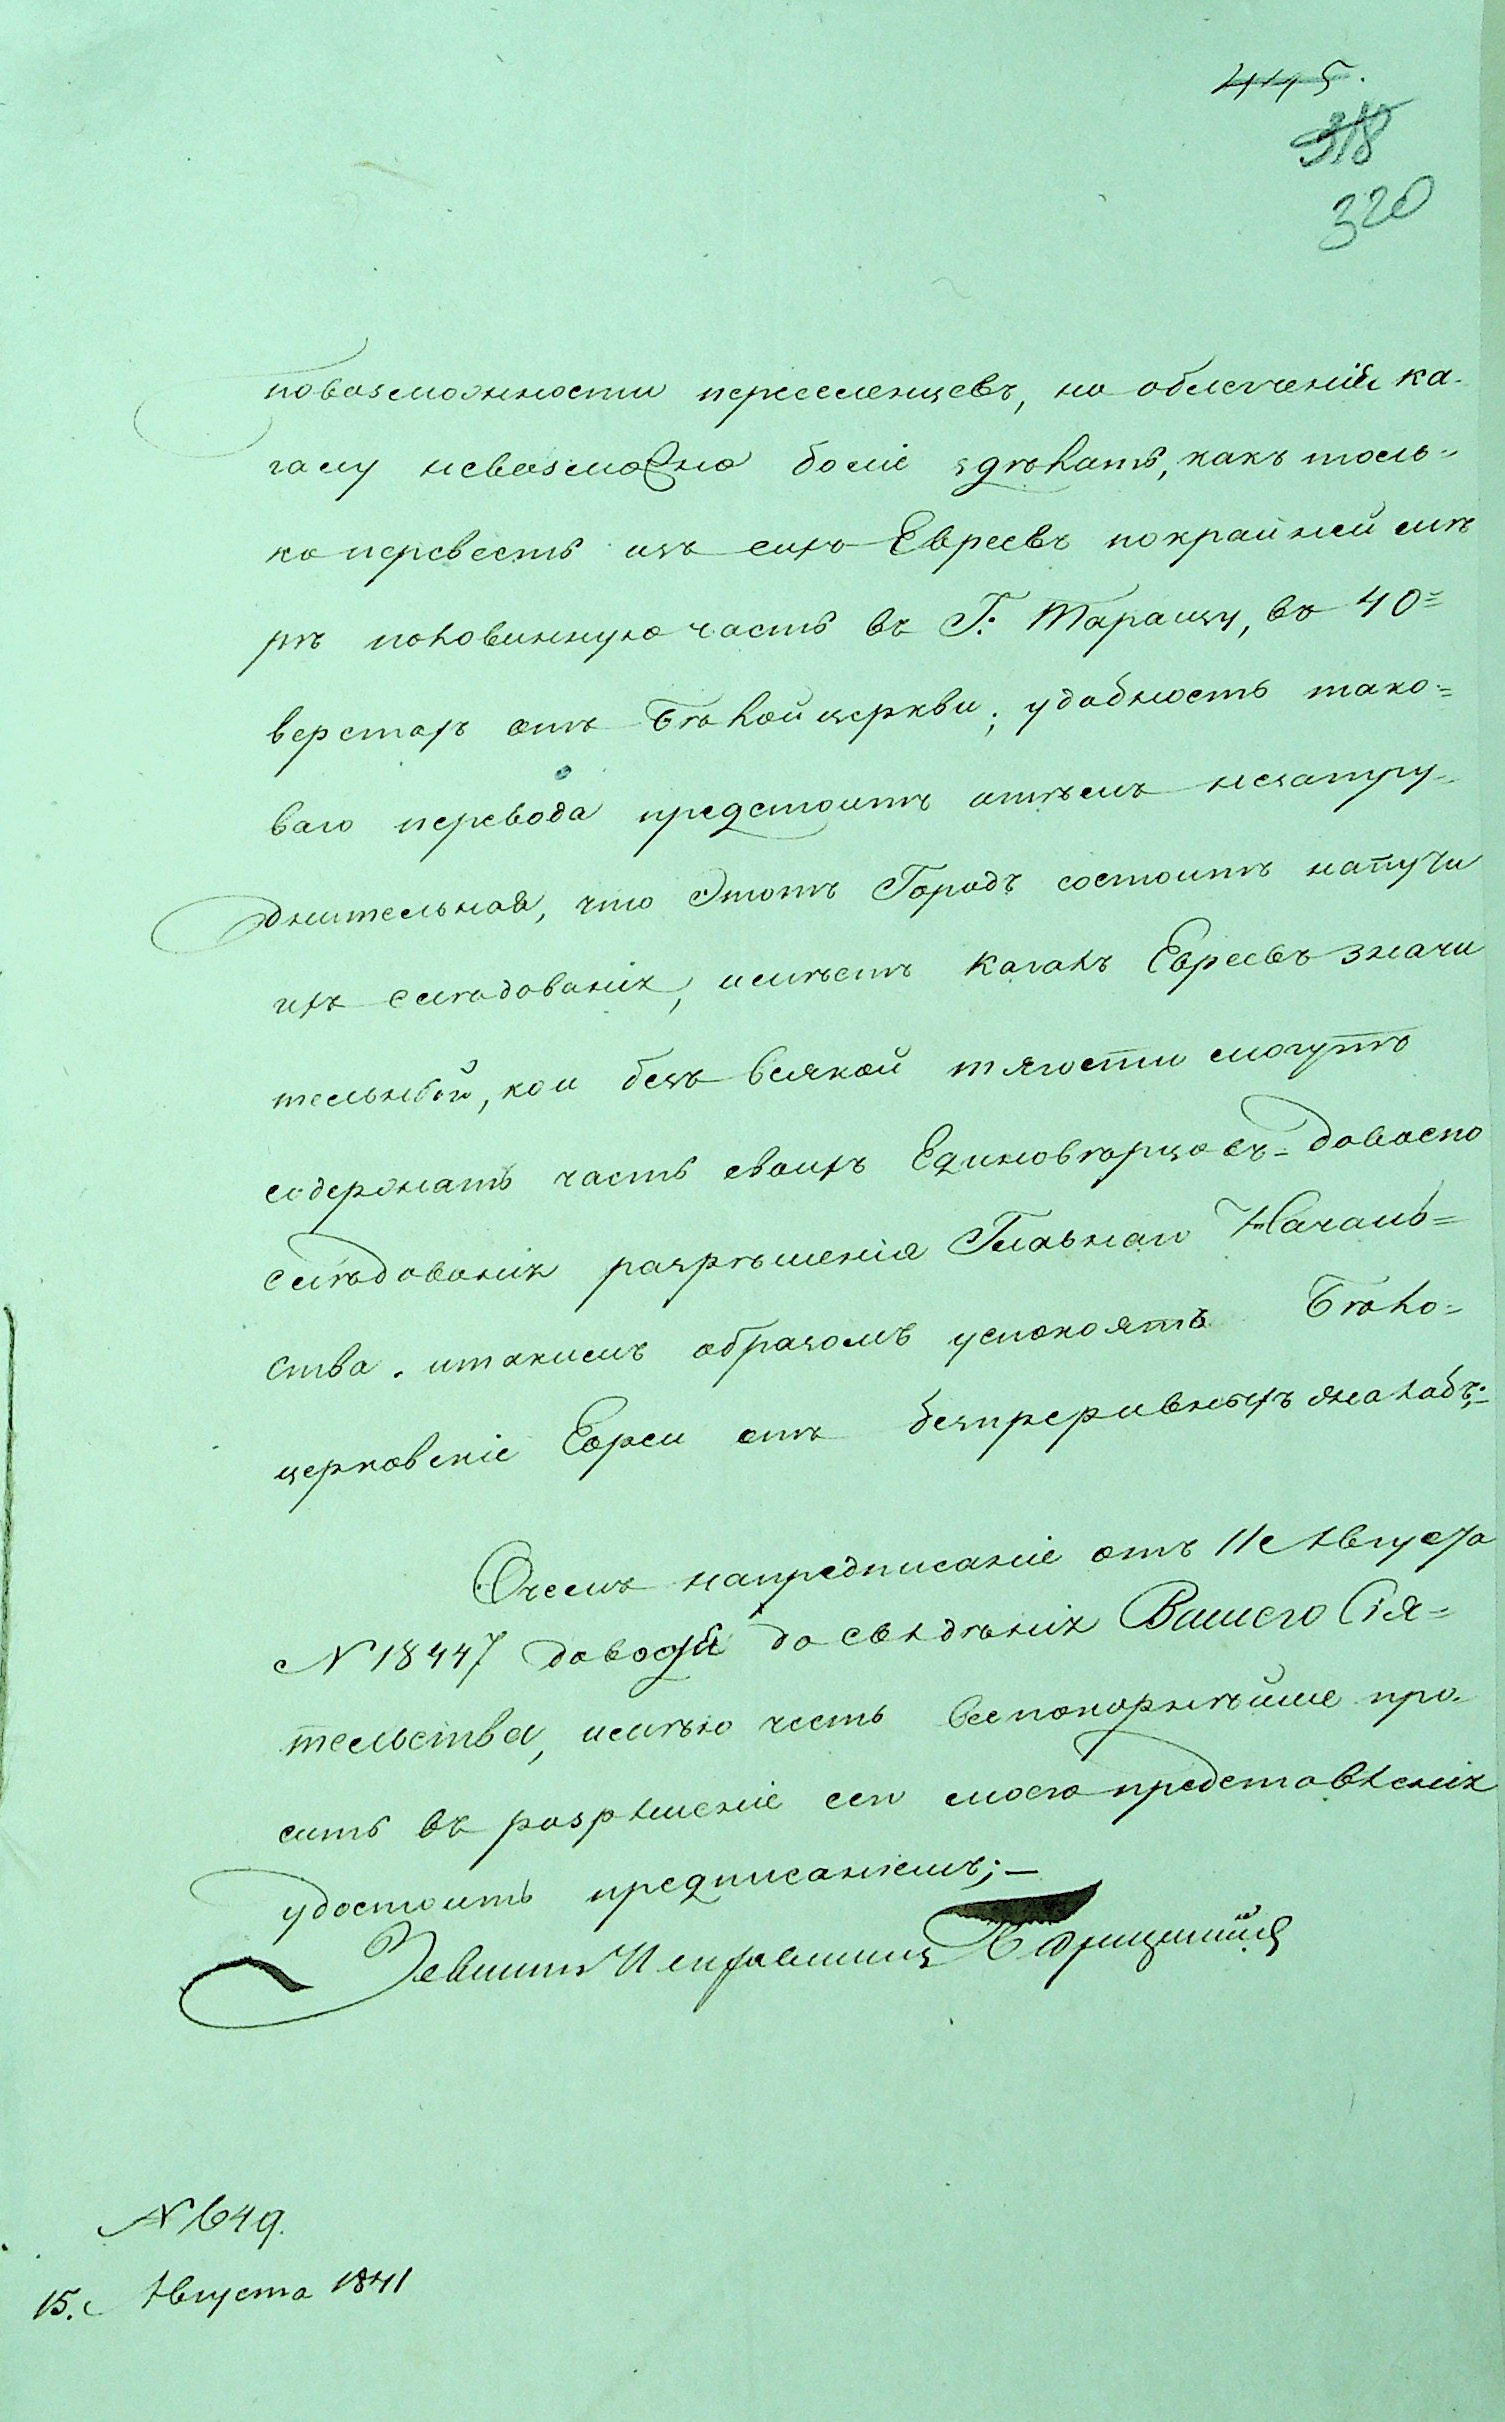 445.
318
320
повозможности переселенцевъ, но облегченія ка-
галу невозможно боліе здѣлать, какъ толь-
ко перевесть изъ сихъ Евреевъ покрайней мѣ
рѣ половинную часть въ Г: Таращу, въ 40=
верстахъ отъ Бѣлой церкви; удобность тако=
ваго перевода предстоитъ итѣмъ незатру-
днительная, что Этотъ Городъ состоитъ напути
ихъ слѣдованія, имѣетъ Кагалъ Евреевъ значи
тельный, кои безъ всякой тягости могутъ
содержать часть своихъ Единовѣрцовъ - довоспо
слѣдованія разрѣшенія Главнаго Началь=
ства. итакимъ образомъ успокоятъ Бѣло=
церковскіе Евреи отъ безпреривныхъ жалобъ;-
Очемъ напредписаніе отъ 11 Августа
№ 18447 доводя до свѣдѣнія Вашего Сія=
тельства, имѣю честь всепокорнѣйше про-
сить въ разрѣшеніе сего моего представленія
удостоить предписаніемъ;—
Земскій Исправникъ
№ 649.
15. Августа 1841